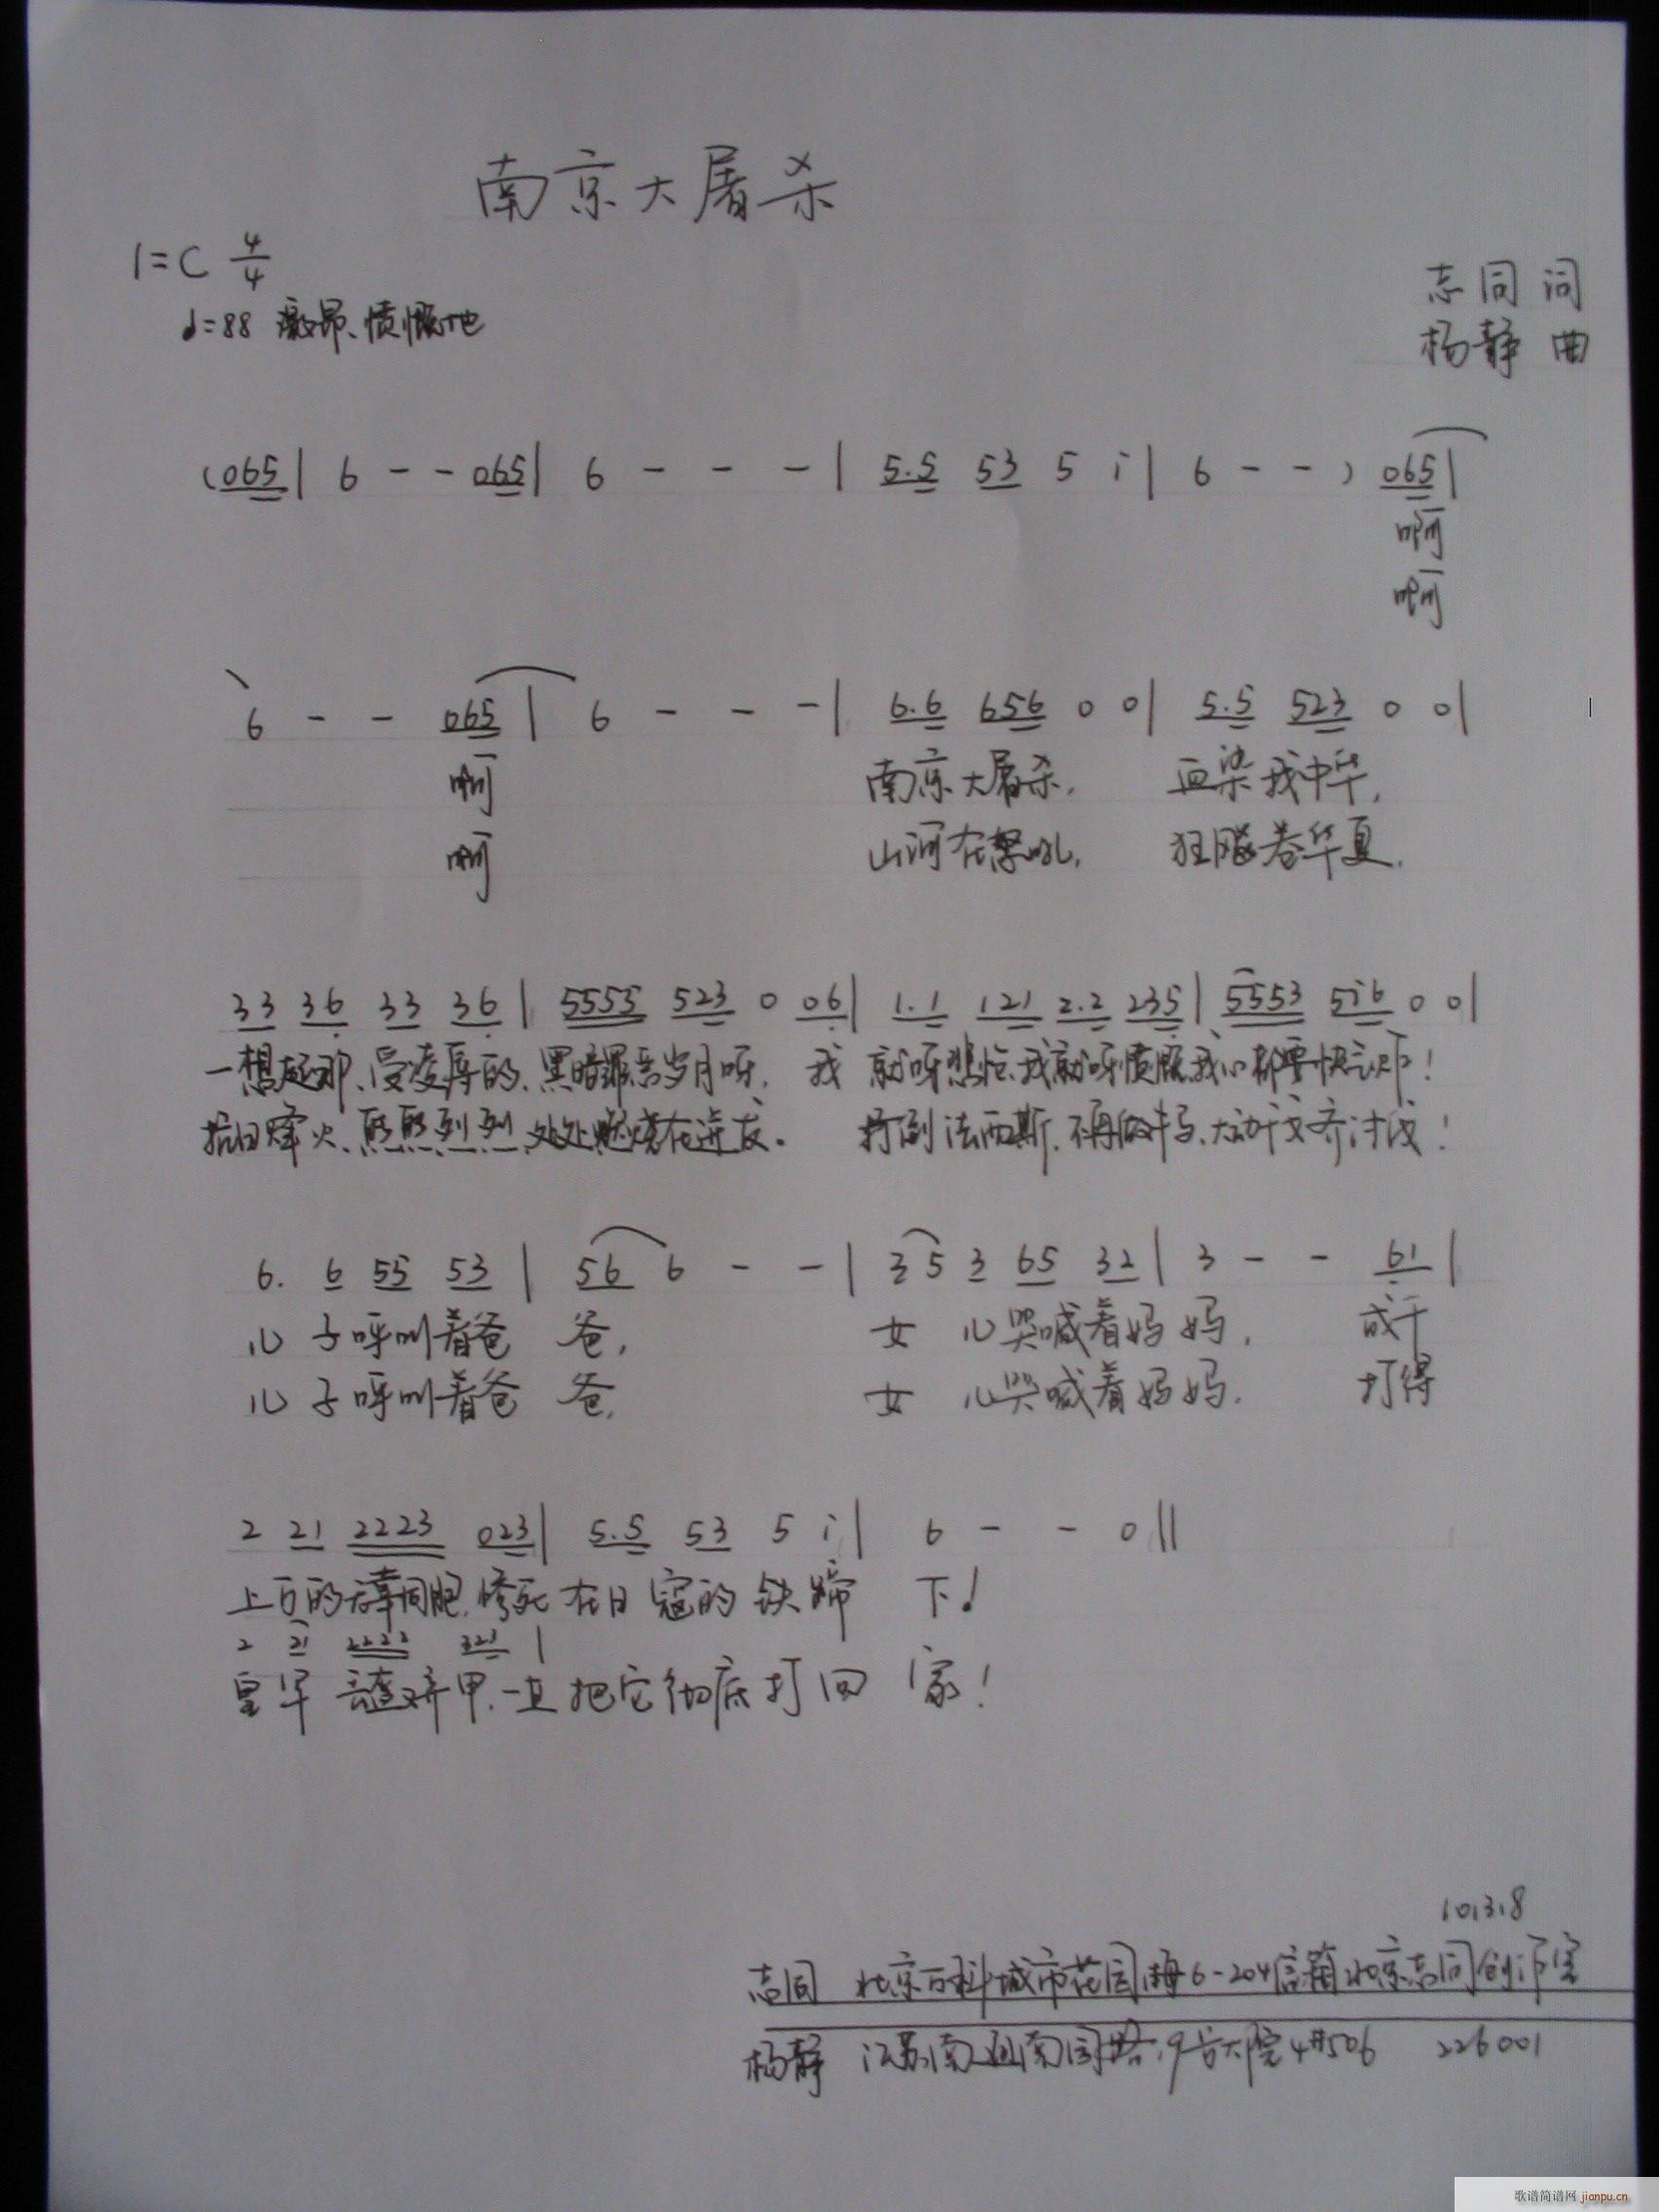 南京大屠杀
1=C 4/4
♩=88 激昂、愤慨地
志同 词
杨静 曲
(065| 6 - - 065| 6 - - -| 5.5 53 5 i| 6 - - ) 065|
啊
啊
6 - - 065 | 6 - - -| 6.6 656 0 0| 5.5 523 0 0|
啊 南京大屠杀, 血染我中华,
啊 山河在怒吼, 狂飚卷华夏.
33 36 33 36 | 5555 523 0 06| 1.1 121 2.2 235| 5553 5i6 0 0|
一想起那、受凌辱的、黑暗罪恶岁月呀, 我 就呀悲怆、我就呀愤慨、我心都要快
抗日烽火、熙熙烈烈、处处燃烧在 打倒法西斯, 不再做牛马、大动干戈齐讨伐!
6. 6 55 53 | 56 6 - - | 35 3 65 32 | 3 - - 61 |
儿 子呼叫着爸 爸, 女 儿哭喊着妈妈, 成千
儿 子呼叫着爸 爸, 女 儿哭喊着妈妈. 打得
2 21 2223 023| 5.5 53 5 i| 6 - - 0||
上万的无辜同胞, 惨死在日寇的铁蹄 下!
2 21 2222 321 |
皇军 丢盔弃甲, 一直把它彻底打回 家!
10.3.8
志同 北京万科城市花园 6-204信箱北京志同创作室
杨静 江苏南通南园路,9号大院4#506 226001
歌谱简谱网 jianpu.cn